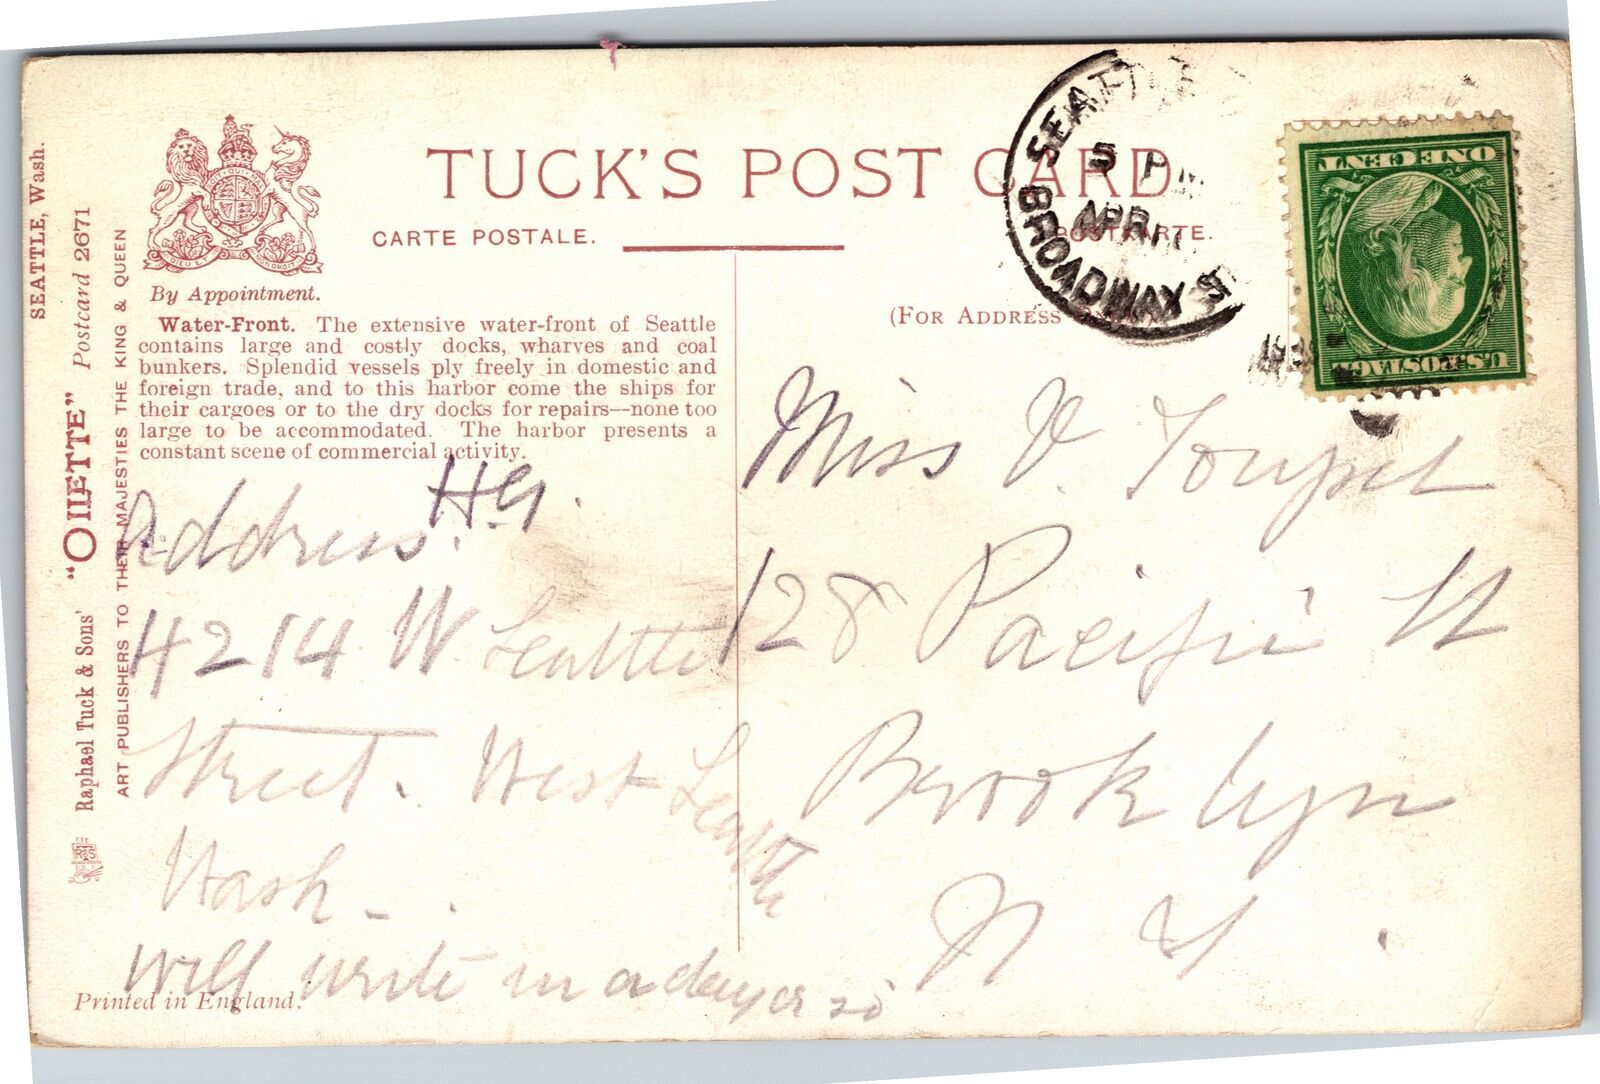 SEATTLE, Wash.
Raphael Tuck & Sons' "OILETTE" Postcard 2671
ART PUBLISHERS TO THEIR MAJESTIES THE KING & QUEEN
DIEU ET MON DROIT
By Appointment.
TUCK'S POST CARD
CARTE POSTALE.
POSTKARTE.
(FOR ADDRESS
Water-Front. The extensive water-front of Seattle
contains large and costly docks, wharves and coal
bunkers. Splendid vessels ply freely in domestic and
foreign trade, and to this harbor come the ships for
their cargoes or to the dry docks for repairs—none too
large to be accommodated. The harbor presents a
constant scene of commercial activity.
Address. H.G.
4214 W. Seattle
Street. West Seattle
Wash.
Will write in a day or so
Printed in England.
SEATTLE
5 PM
APR
BROADWAY
ONE CENT
U.S. POSTAGE
Miss V.
128 Pacific St
Brooklyn
N Y.